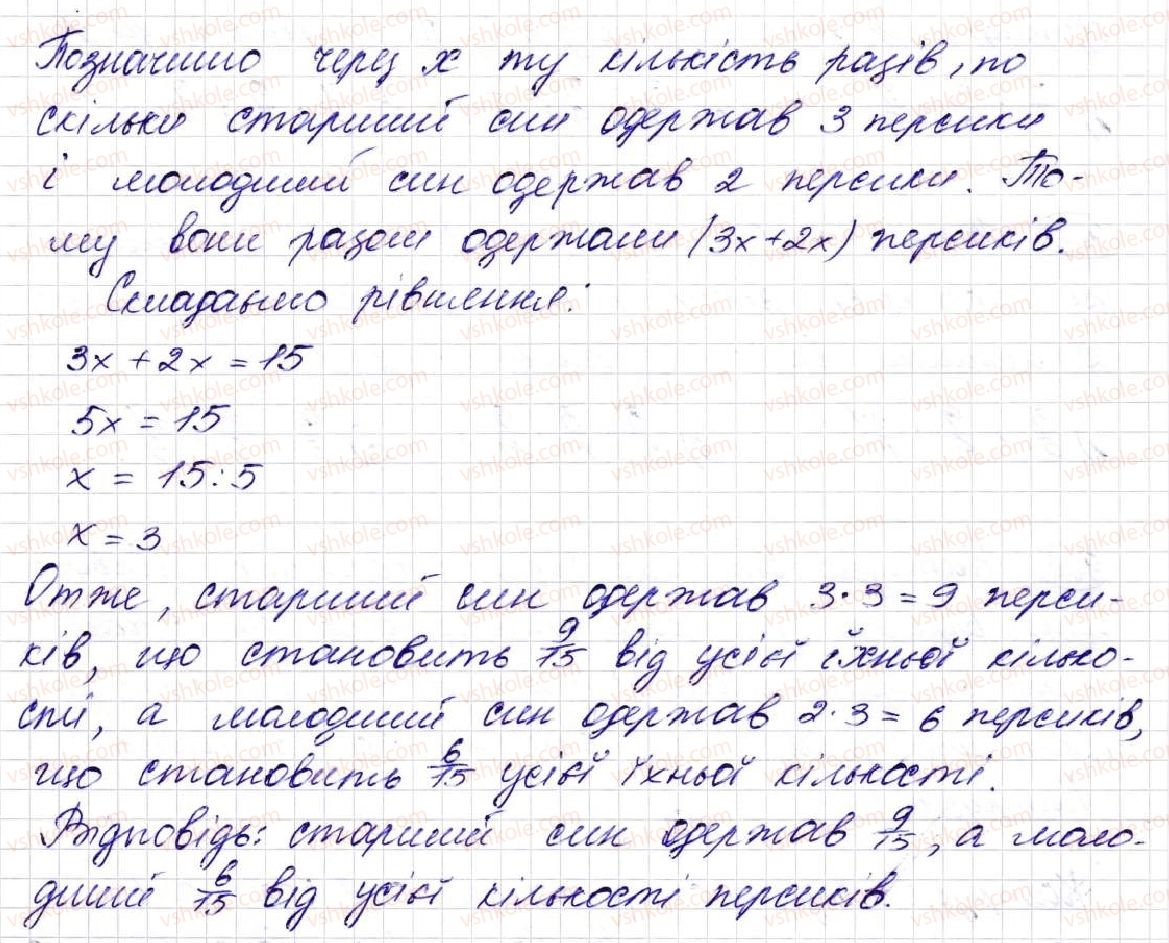 Позначимо через x ту кількість разів, по
скільки старший син одержав 3 персики
і молодший син одержав 2 персики. То-
му вони разом одержали (3x+2x) персиків.
Складаємо рівняння:
3x + 2x = 15
5x = 15
x = 15:5
x = 3
Отже, старший син одержав 3·3=9 перси-
ків, що становить 9/15 від усієї їхньої кілько-
сті, а молодший син одержав 2·3=6 персиків,
що становить 6/15 усієї їхньої кількості.
Відповідь: старший син одержав 9/15, а моло-
дший 6/15 від усієї кількості персиків.
vshkole.com